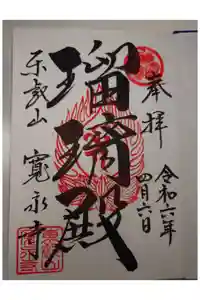 奉拝
令和六年
四月六日
瑠璃殿
东叡山
寛永寺